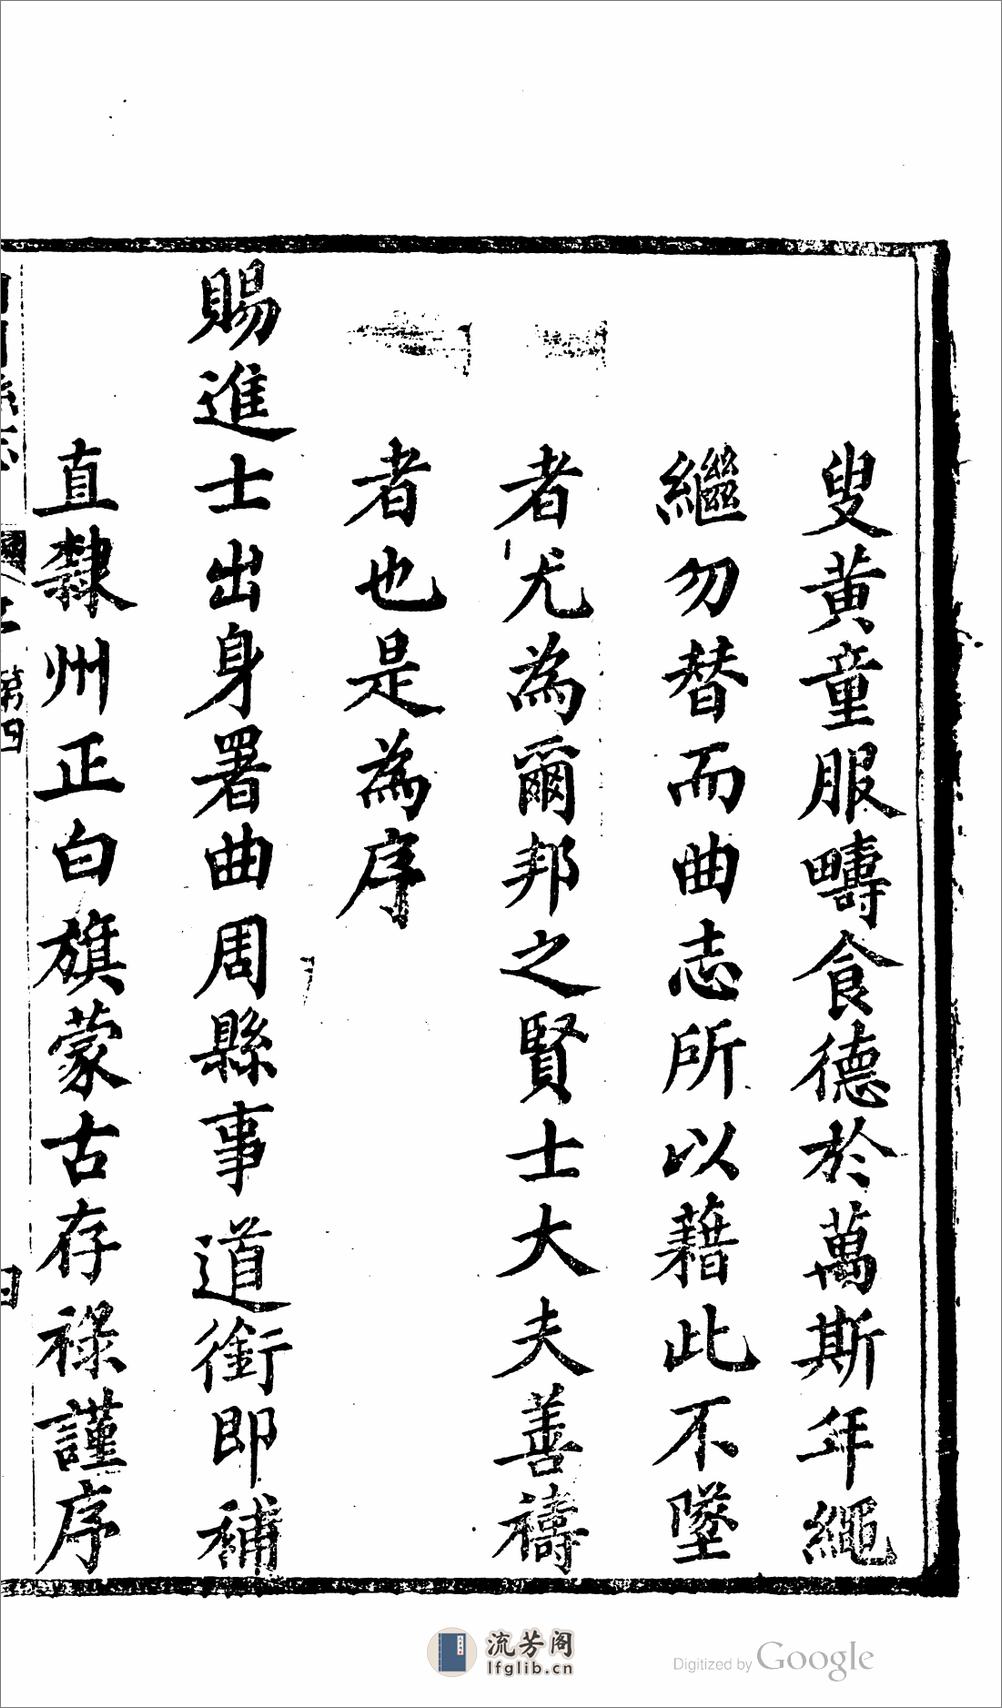 叟黃童服疇食德於萬斯年繩
繼勿替而曲志所以藉此不墜
者尤為爾邦之賢士大夫善禱
者也是為序
賜進士出身署曲周縣事 道銜即補
直隸州正白旗蒙古存祿謹序
第四
流芳阁
lfglib.cn
Digitized by Google